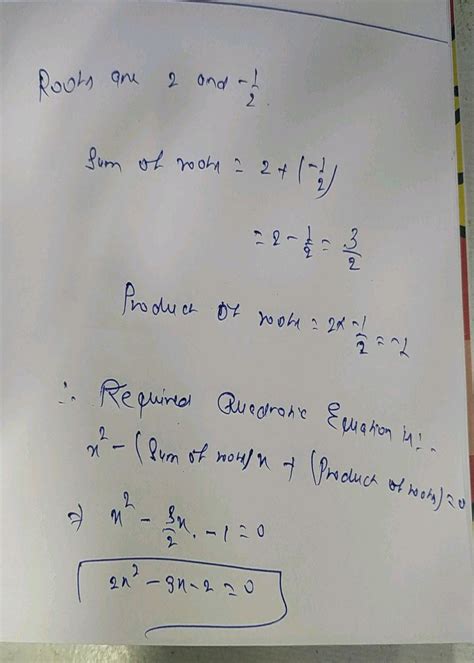 Roots are 2 and -1/2.
Sum of roots = 2 + (-1/2)
= 2 - 1/2 = 3/2
Product of roots = 2x -1/2 = -1
∴ Required Quadratic Equation is:-
x² - (Sum of roots)x + (Product of roots) = 0
⇒ x² - 3/2 x - 1 = 0
2x² - 3x - 2 = 0